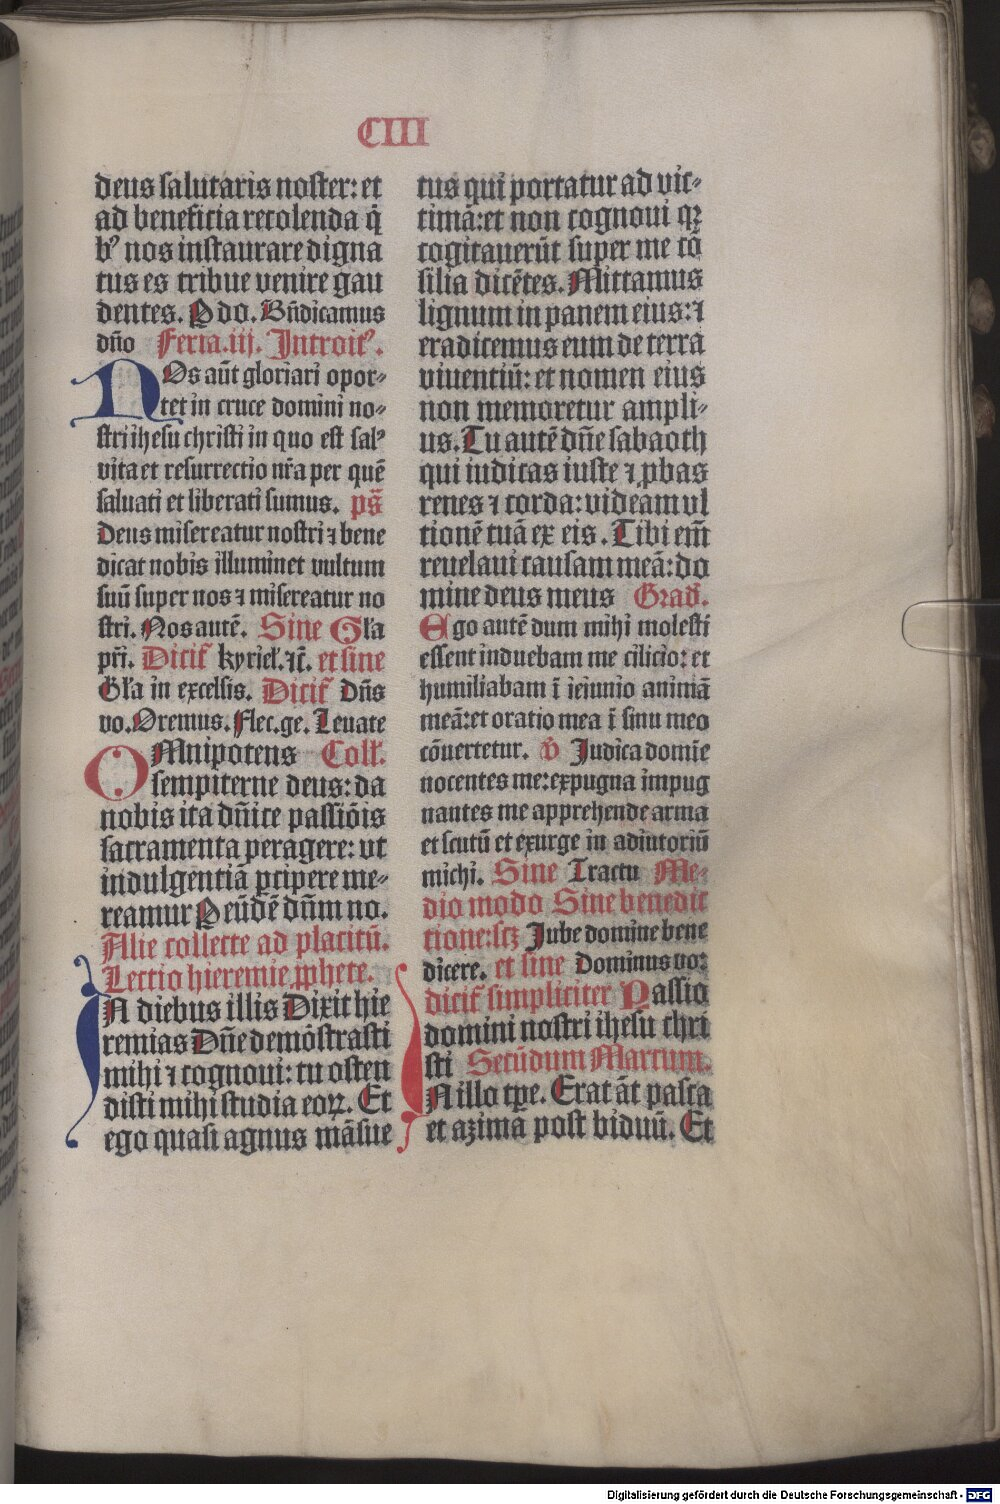 CIII
deus salutaris noster: et
ad beneficia recolenda q̄
bꝰ nos instaurare digna
tus es tribue venire gau
dentes. P do. Bn̄dicamus
dn̄o Feria.iij. Introitꝰ.
NOs aūt gloriari opor⸗
tet in cruce domini no⸗
stri ihesu christi in quo est salꝰ
vita et resurrectio nr̄a per quē
saluati et liberati sumus. ps̄
Deus misereatur nostri ⁊ bene
dicat nobis illuminet vultum
suū super nos ⁊ misereatur no
stri. Nos autē. Sine Gl'a
pr̄i. Dicit' kyriel'.⁊c̄. et sine
Gl'a in excelsis. Dicit' Dn̄s
vo. Oremus. Flec.ge. Leuate
OMnipotens Coll'.
sempiterne deus: da
nobis ita dn̄ice passiōis
sacramenta peragere: vt
indulgentiā ꝑcipere me⸗
reamur P eūdē dn̄m no.
Alie collecte ad placitū.
Lectio hieremie ꝓphete.
IN diebus illis Dixit hie
remias Dn̄e demōstrasti
mihi ⁊ cognoui: tu osten
disti mihi studia eoꝝ. Et
ego quasi agnus māsue
tus qui portatur ad vic⸗
timā: et non cognoui qꝛ
cogitauerūt super me cō
silia dicētes. Mittamus
lignum in panem eius: ⁊
eradicemus eum de terra
viuentiū: et nomen eius
non memoretur ampli⸗
us. Tu autē dn̄e sabaoth
qui iudicas iuste ⁊ ꝓbas
renes ⁊ corda: videam vl
tionē tuā ex eis. Tibi em̄
reuelaui causam meā: do
mine deus meus Grad'.
Ego autē dum mihi molesti
essent induebam me cilicio: et
humiliabam ī ieiunio animā
meā: et oratio mea ī sinu meo
cōuertetur. v̄ Iudica domīe
nocentes me: expugna impug
nantes me apprehende arma
et scutū et exurge in adiutoriū
michi. Sine Tractu Me⸗
dio modo Sine benedic
tione: scꝫ Jube domine bene
dicere. et sine Dominus vo:
dicit' simpliciter Passio
domini nostri ihesu chri
sti Secūdum Marcum.
IN illo tꝑe. Erat āt pasca
et azima post biduū. Et
Digitalisierung gefördert durch die Deutsche Forschungsgemeinschaft - DFG